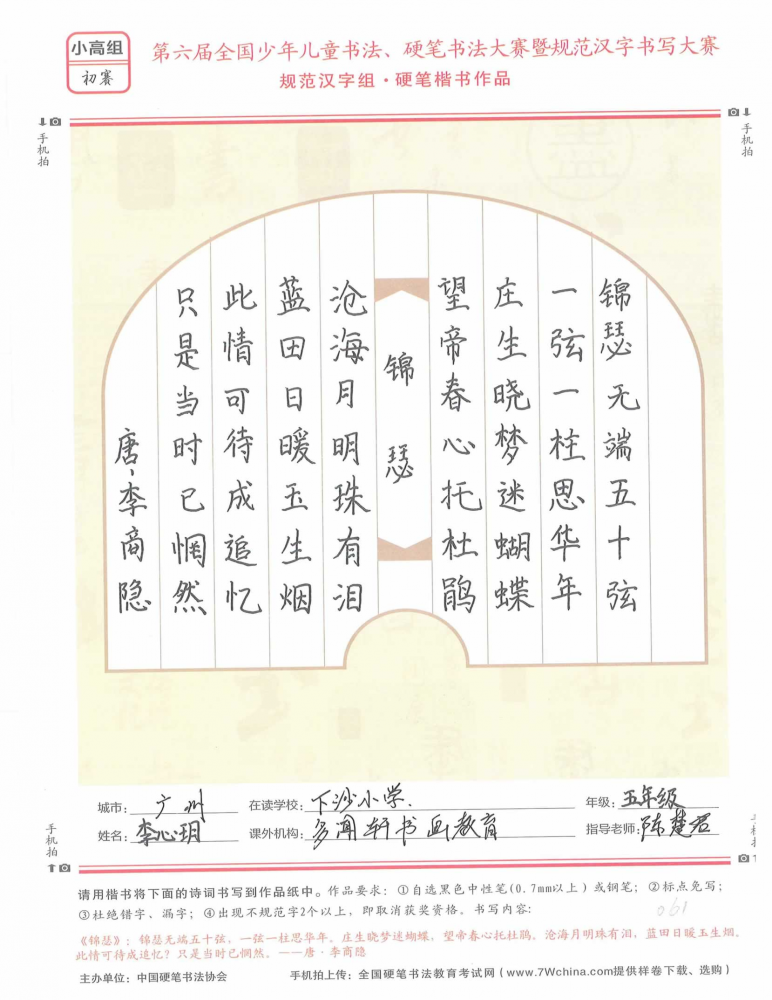 小高组
初赛
第六届全国少年儿童书法、硬笔书法大赛暨规范汉字书写大赛
规范汉字组·硬笔楷书作品
手机拍
手机拍
锦瑟无端五十弦
一弦一柱思华年
庄生晓梦迷蝴蝶
望帝春心托杜鹃
锦瑟
沧海月明珠有泪
蓝田日暖玉生烟
此情可待成追忆
只是当时已惘然
唐·李商隐
城市：广州 在读学校：下沙小学. 年级：五年级
姓名：李心玥 课外机构：多闻轩书画教育 指导老师：陈楚君
手机拍
手机拍
请用楷书将下面的诗词书写到作品纸中。作品要求：①自选黑色中性笔(0.7mm以上)或钢笔；②标点免写；
③杜绝错字、漏字；④出现不规范字2个以上，即取消获奖资格。书写内容：
061
《锦瑟》：锦瑟无端五十弦，一弦一柱思华年。庄生晓梦迷蝴蝶，望帝春心托杜鹃。沧海月明珠有泪，蓝田日暖玉生烟。
此情可待成追忆？只是当时已惘然。——唐·李商隐
主办单位：中国硬笔书法协会 手机拍上传：全国硬笔书法教育考试网（www.7Wchina.com提供样卷下载、选购）